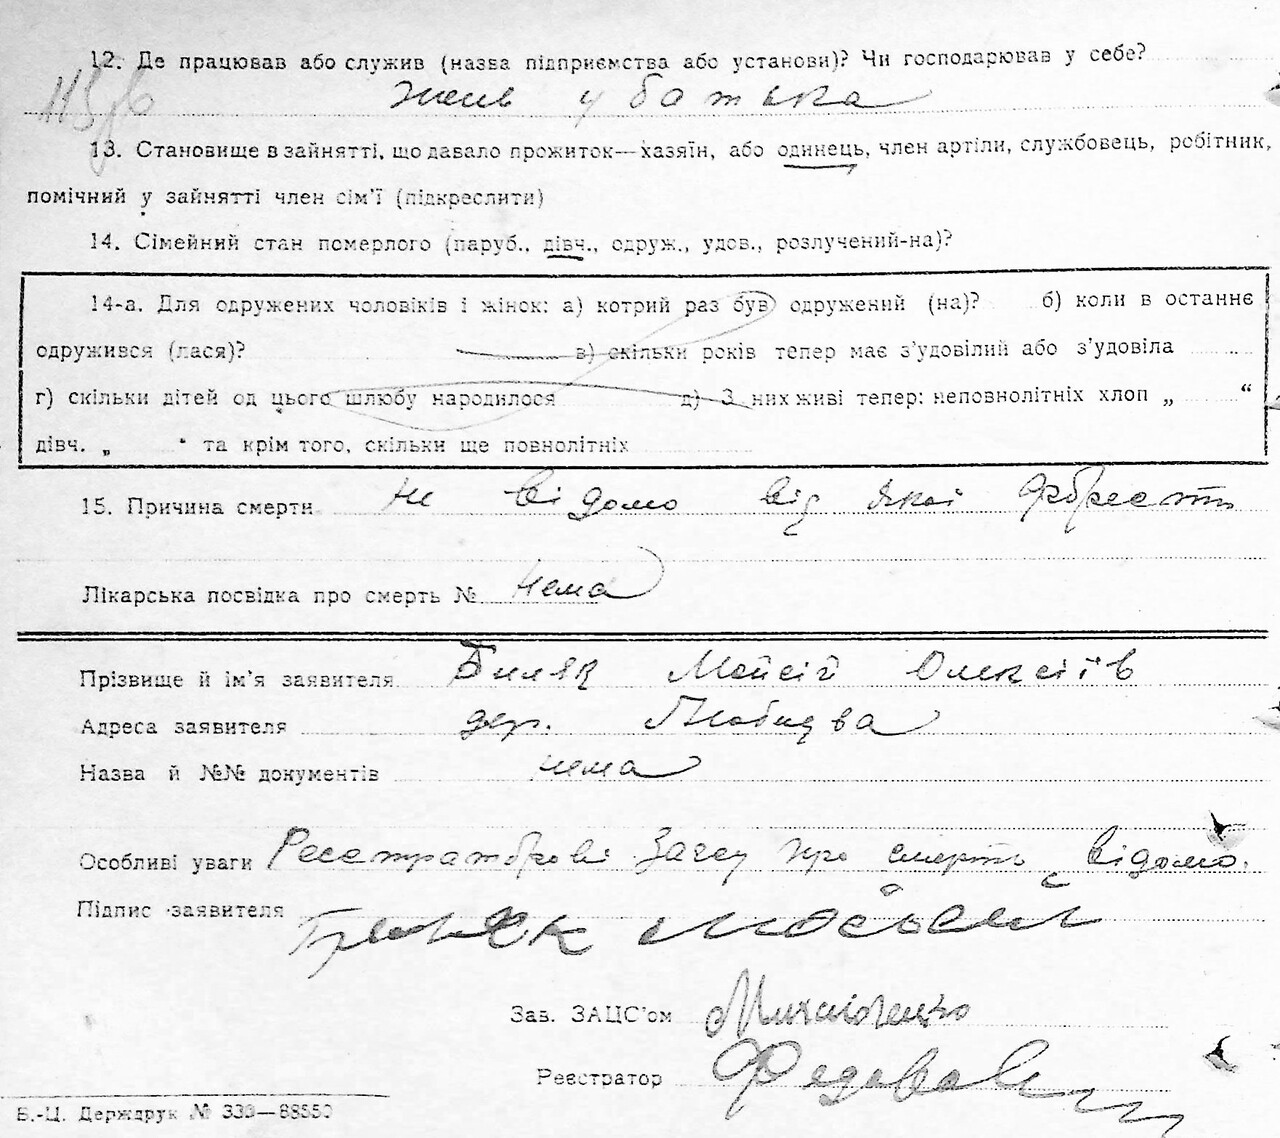 12. Де працював або служив (назва підприємства або установи)? Чи господарював у себе?
жив у батька
13. Становище в зайнятті, що давало прожиток—хазяїн, або одинець, член артіли, службовець, робітник,
помічний у зайнятті член сім'ї (підкреслити)
14. Сімейний стан померлого (паруб., дівч., одруж., удов., розлучений-на)?
14-а. Для одружених чоловіків і жінок: а) котрий раз був одружений (на)? б) коли в останнє
одружився (лася)? в) скільки років тепер має з'удовілий або з'удовіла
г) скільки дітей од цього шлюбу народилося д) З них живі тепер: неповнолітніх хлоп „ “
дівч. „ “ та крім того, скільки ще повнолітніх
15. Причина смерти не відомо від якої
Лікарська посвідка про смерть № нема
Прізвище й ім'я заявителя Мойсій Олексіїв
Адреса заявителя дер.
Назва й №№ документів нема
Особливі уваги Реєстраторові Загсу про смерть відомо.
Підпис заявителя
Зав. ЗАЦС'ом Михайличенко
Реєстратор
Б.-Ц. Держдрук № 339—88550